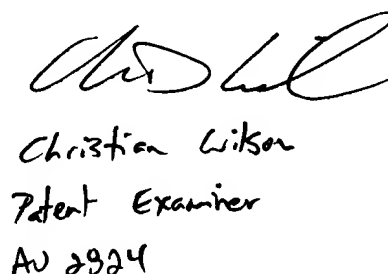 Christian Wilson
Patent Examiner
AU 2824